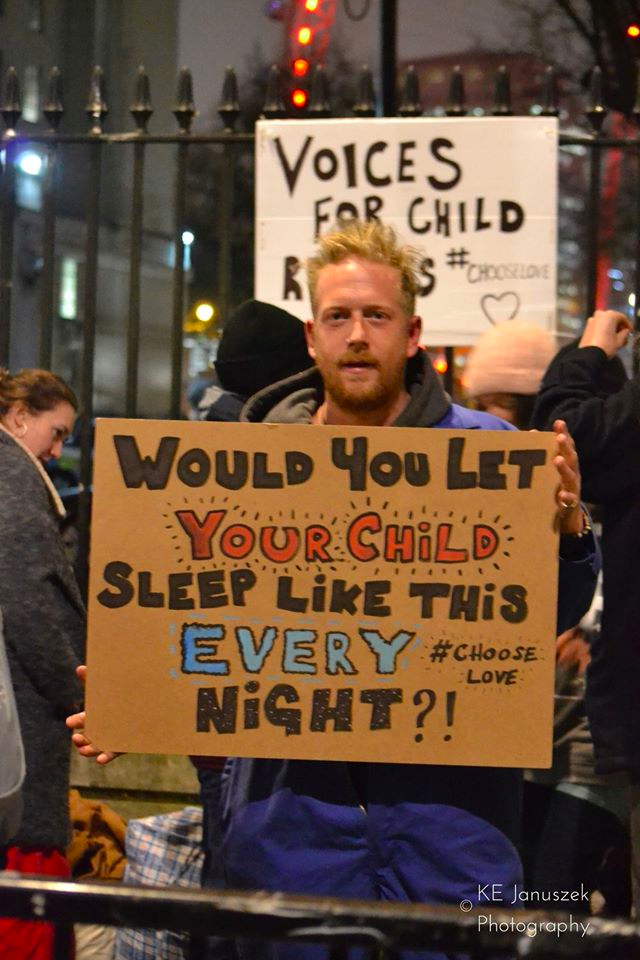 VOICES
FOR CHILD
#CHOOSELOVE
WOULD YOU LET
YOUR CHiLD
SLEEP LiKE THiS
EVERY
#CHOOSE
LOVE
NiGHT?!
© KE Januszek
Photography